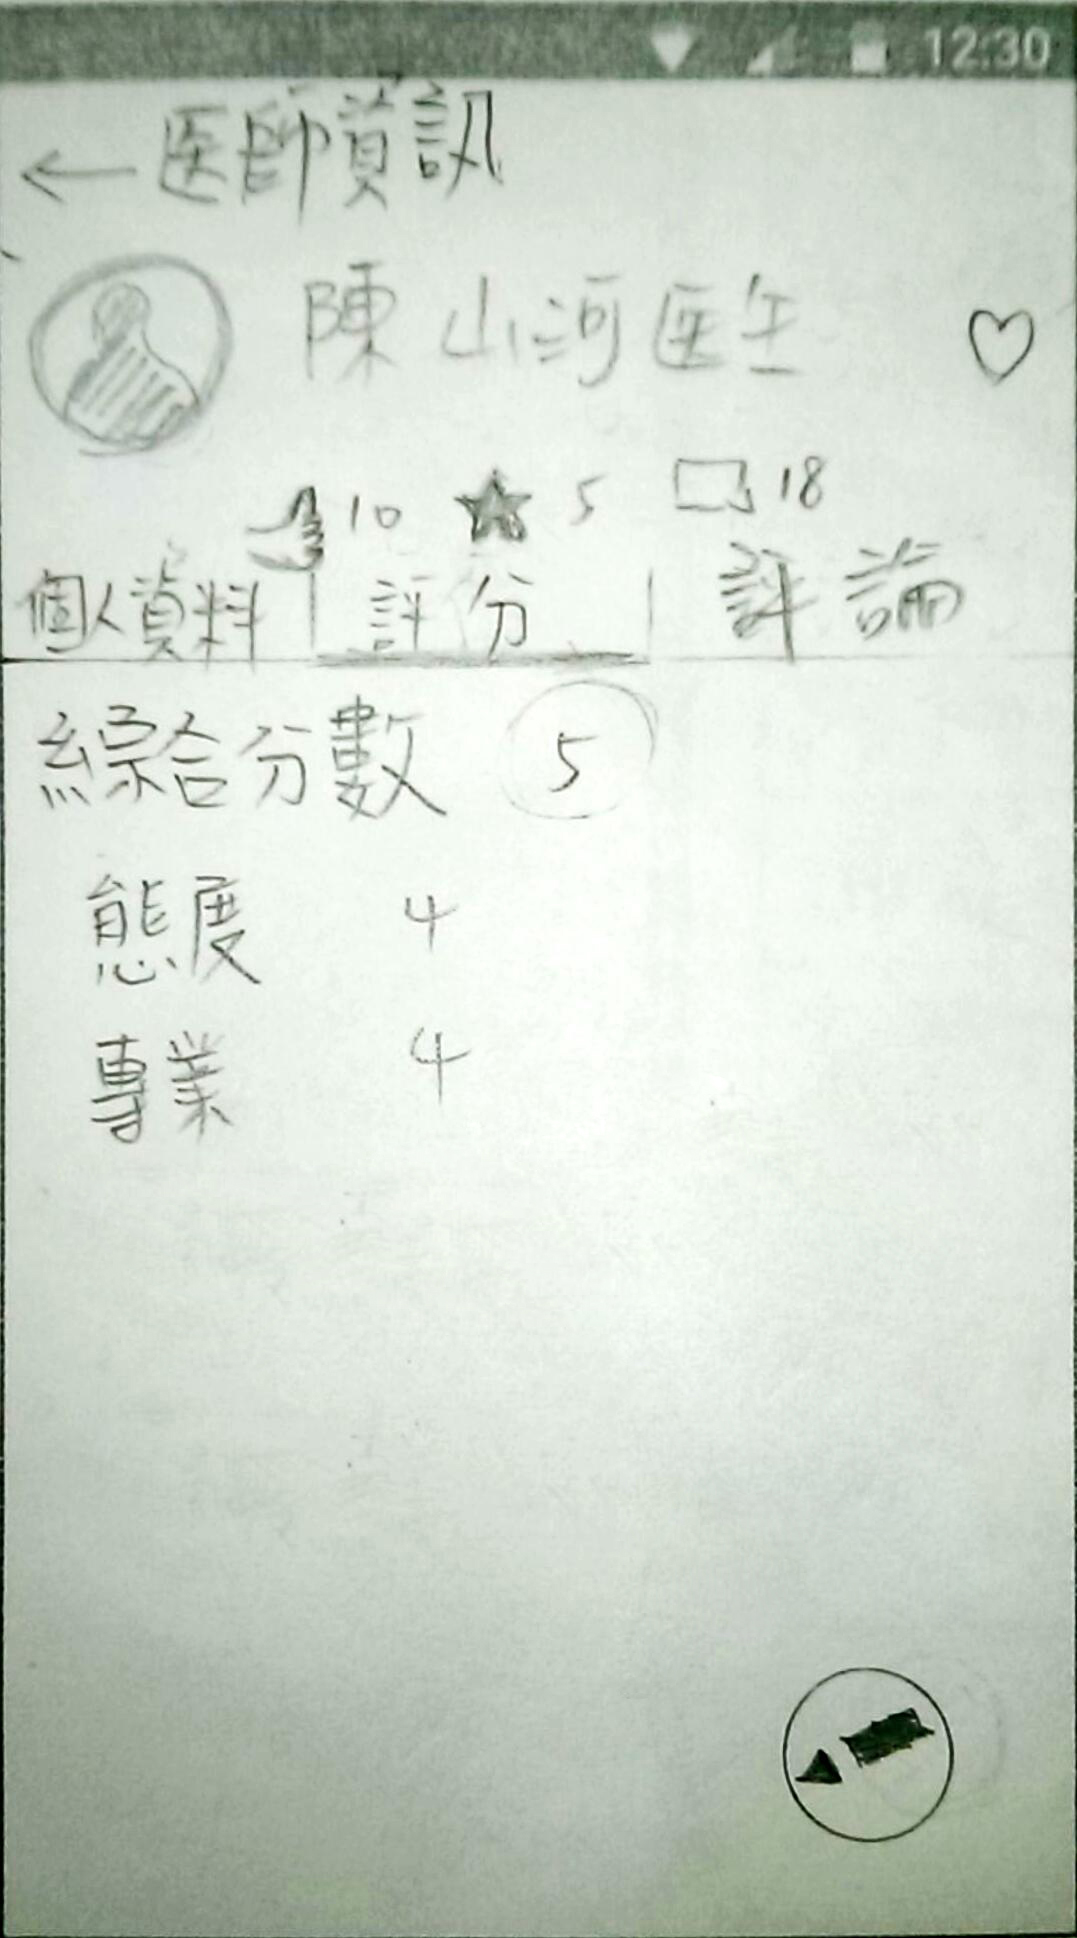 12:30
← 医師資訊
陳山河医生
10 5 18
個人資料 評分 評論
綜合分數 5
態度 4
專業 4